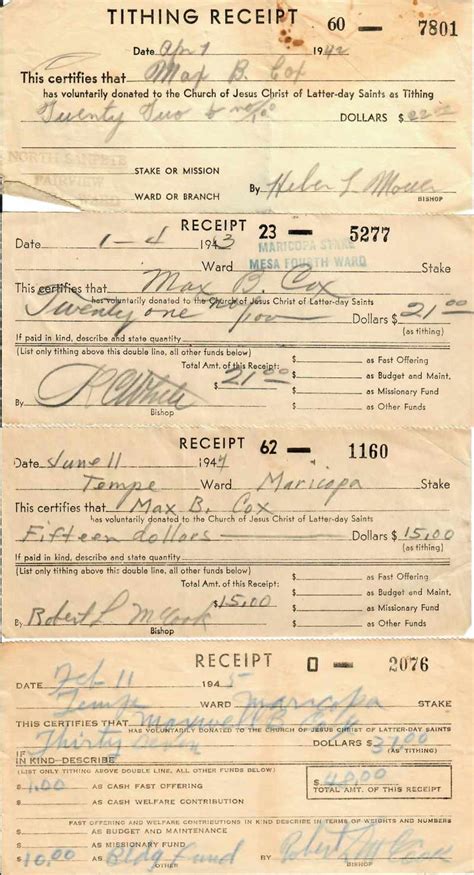 TITHING RECEIPT 60 — 7801
Date Apr 1 1942
This certifies that Max B. Cox
has voluntarily donated to the Church of Jesus Christ of Latter-day Saints as Tithing
Twenty Two & no/100 DOLLARS $22.00
NORTH SANPETE
STAKE OR MISSION
FAIRVIEW
WARD OR BRANCH By Heber L
BISHOP
RECEIPT 23 — 5277
Date 1-4 1943 MARICOPA STAKE
Ward MESA FOURTH WARD Stake
This certifies that Max B. Cox
has voluntarily donated to the Church of Jesus Christ of Latter-day Saints
Twenty one no/100 Dollars $21.00
If paid in kind, describe and state quantity (as tithing)
(List only tithing above this double line, all other funds below) $ as Fast Offering
Total Amt. of this Receipt: $ as Budget and Maint.
$21.00 $ as Missionary Fund
By R C White $ as Other Funds
Bishop
RECEIPT 62 — 1160
Date June 11 1944
Tempe Ward Maricopa Stake
This certifies that Max B. Cox
has voluntarily donated to the Church of Jesus Christ of Latter-day Saints
Fifteen dollars Dollars $15.00
If paid in kind, describe and state quantity (as tithing)
(List only tithing above this double line, all other funds below) $ as Fast Offering
Total Amt. of this Receipt: $ as Budget and Maint.
$15.00 $ as Missionary Fund
By Robert L McCook $ as Other Funds
Bishop
RECEIPT O — 2076
DATE Feb 11 1945
Tempe WARD Maricopa STAKE
THIS CERTIFIES THAT Maxwell B Cox
HAS VOLUNTARILY DONATED TO THE CHURCH OF JESUS CHRIST OF LATTER-DAY SAINTS
Thirty DOLLARS $37.00
IF IN KIND-DESCRIBE (AS TITHING)
(LIST ONLY TITHING ABOVE DOUBLE LINE, ALL OTHER FUNDS BELOW) $
$1.00 AS CASH FAST OFFERING TOTAL AMT. OF THIS RECEIPT
$ AS CASH WELFARE CONTRIBUTION
FAST OFFERING AND WELFARE CONTRIBUTIONS IN KIND DESCRIBE IN TERMS OF WEIGHTS AND NUMBERS
$ AS BUDGET AND MAINTENANCE
$ AS MISSIONARY FUND
$10.00 AS Bldg Fund By Robert L McCook
BISHOP